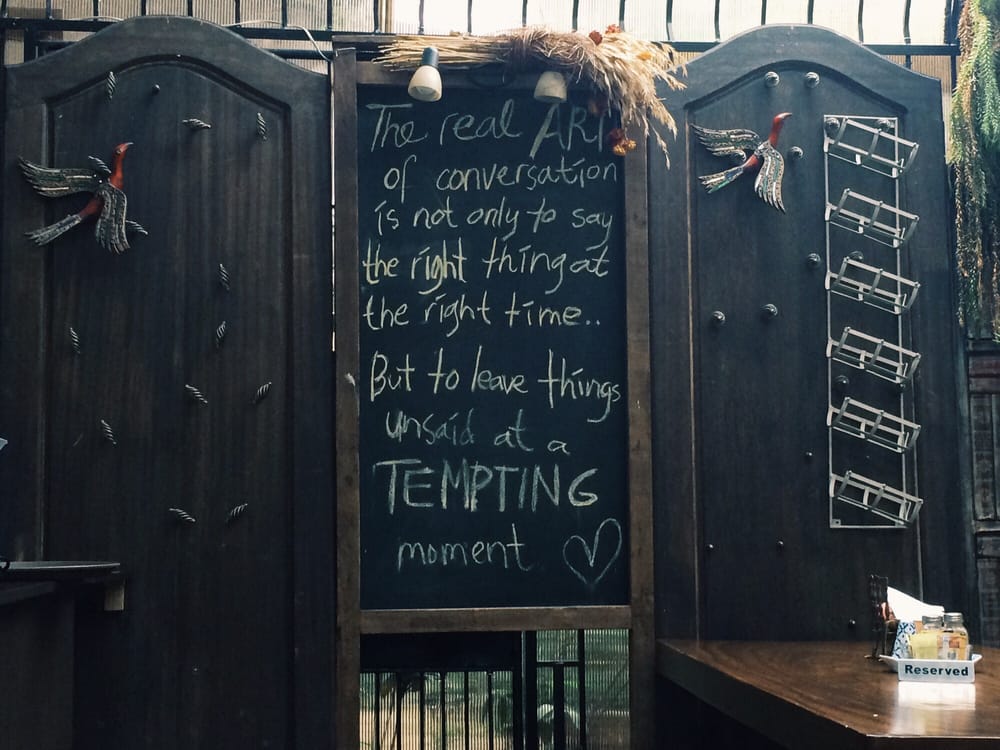 The real ART
of conversation
is not only to say
the right thing at
the right time..
But to leave things
unsaid at a
TEMPTING
moment
Reserved